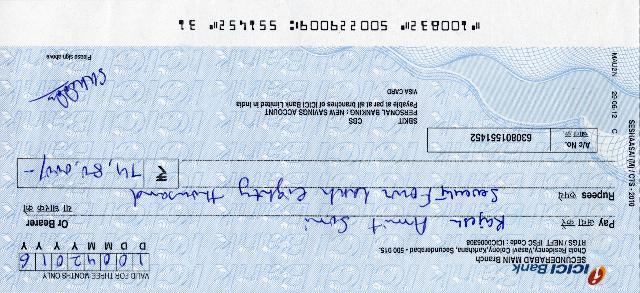 ICICI Bank
SECUNDERABAD MAIN Branch
Chola Residency, Vasavi Colony, Karkhana, Secunderabad, 500 - 015.
RTGS / NEFT IFSC Code : ICIC0006308
VALID FOR THREE MONTHS ONLY
10042016
D D M M Y Y Y Y
Pay Rajesh Amit Soni
को अदा करें
Or Bearer
या धारक को
Rupees रुपये Seventy Four Lakh Eighty thousand
₹ 74,80,000/-
A/c No.
खाता क्र.
630801551452
SBKIT CBS
PERSONAL BANKING : NEW SAVINGS ACCOUNT
Payable at par at all branches of ICICI Bank Limited in India
VISA CARD
Please sign above
SESHAASAI (M) / CTS - 2010
MAU2N 26-06-12 C
"100832" 500229009: 551452" 31